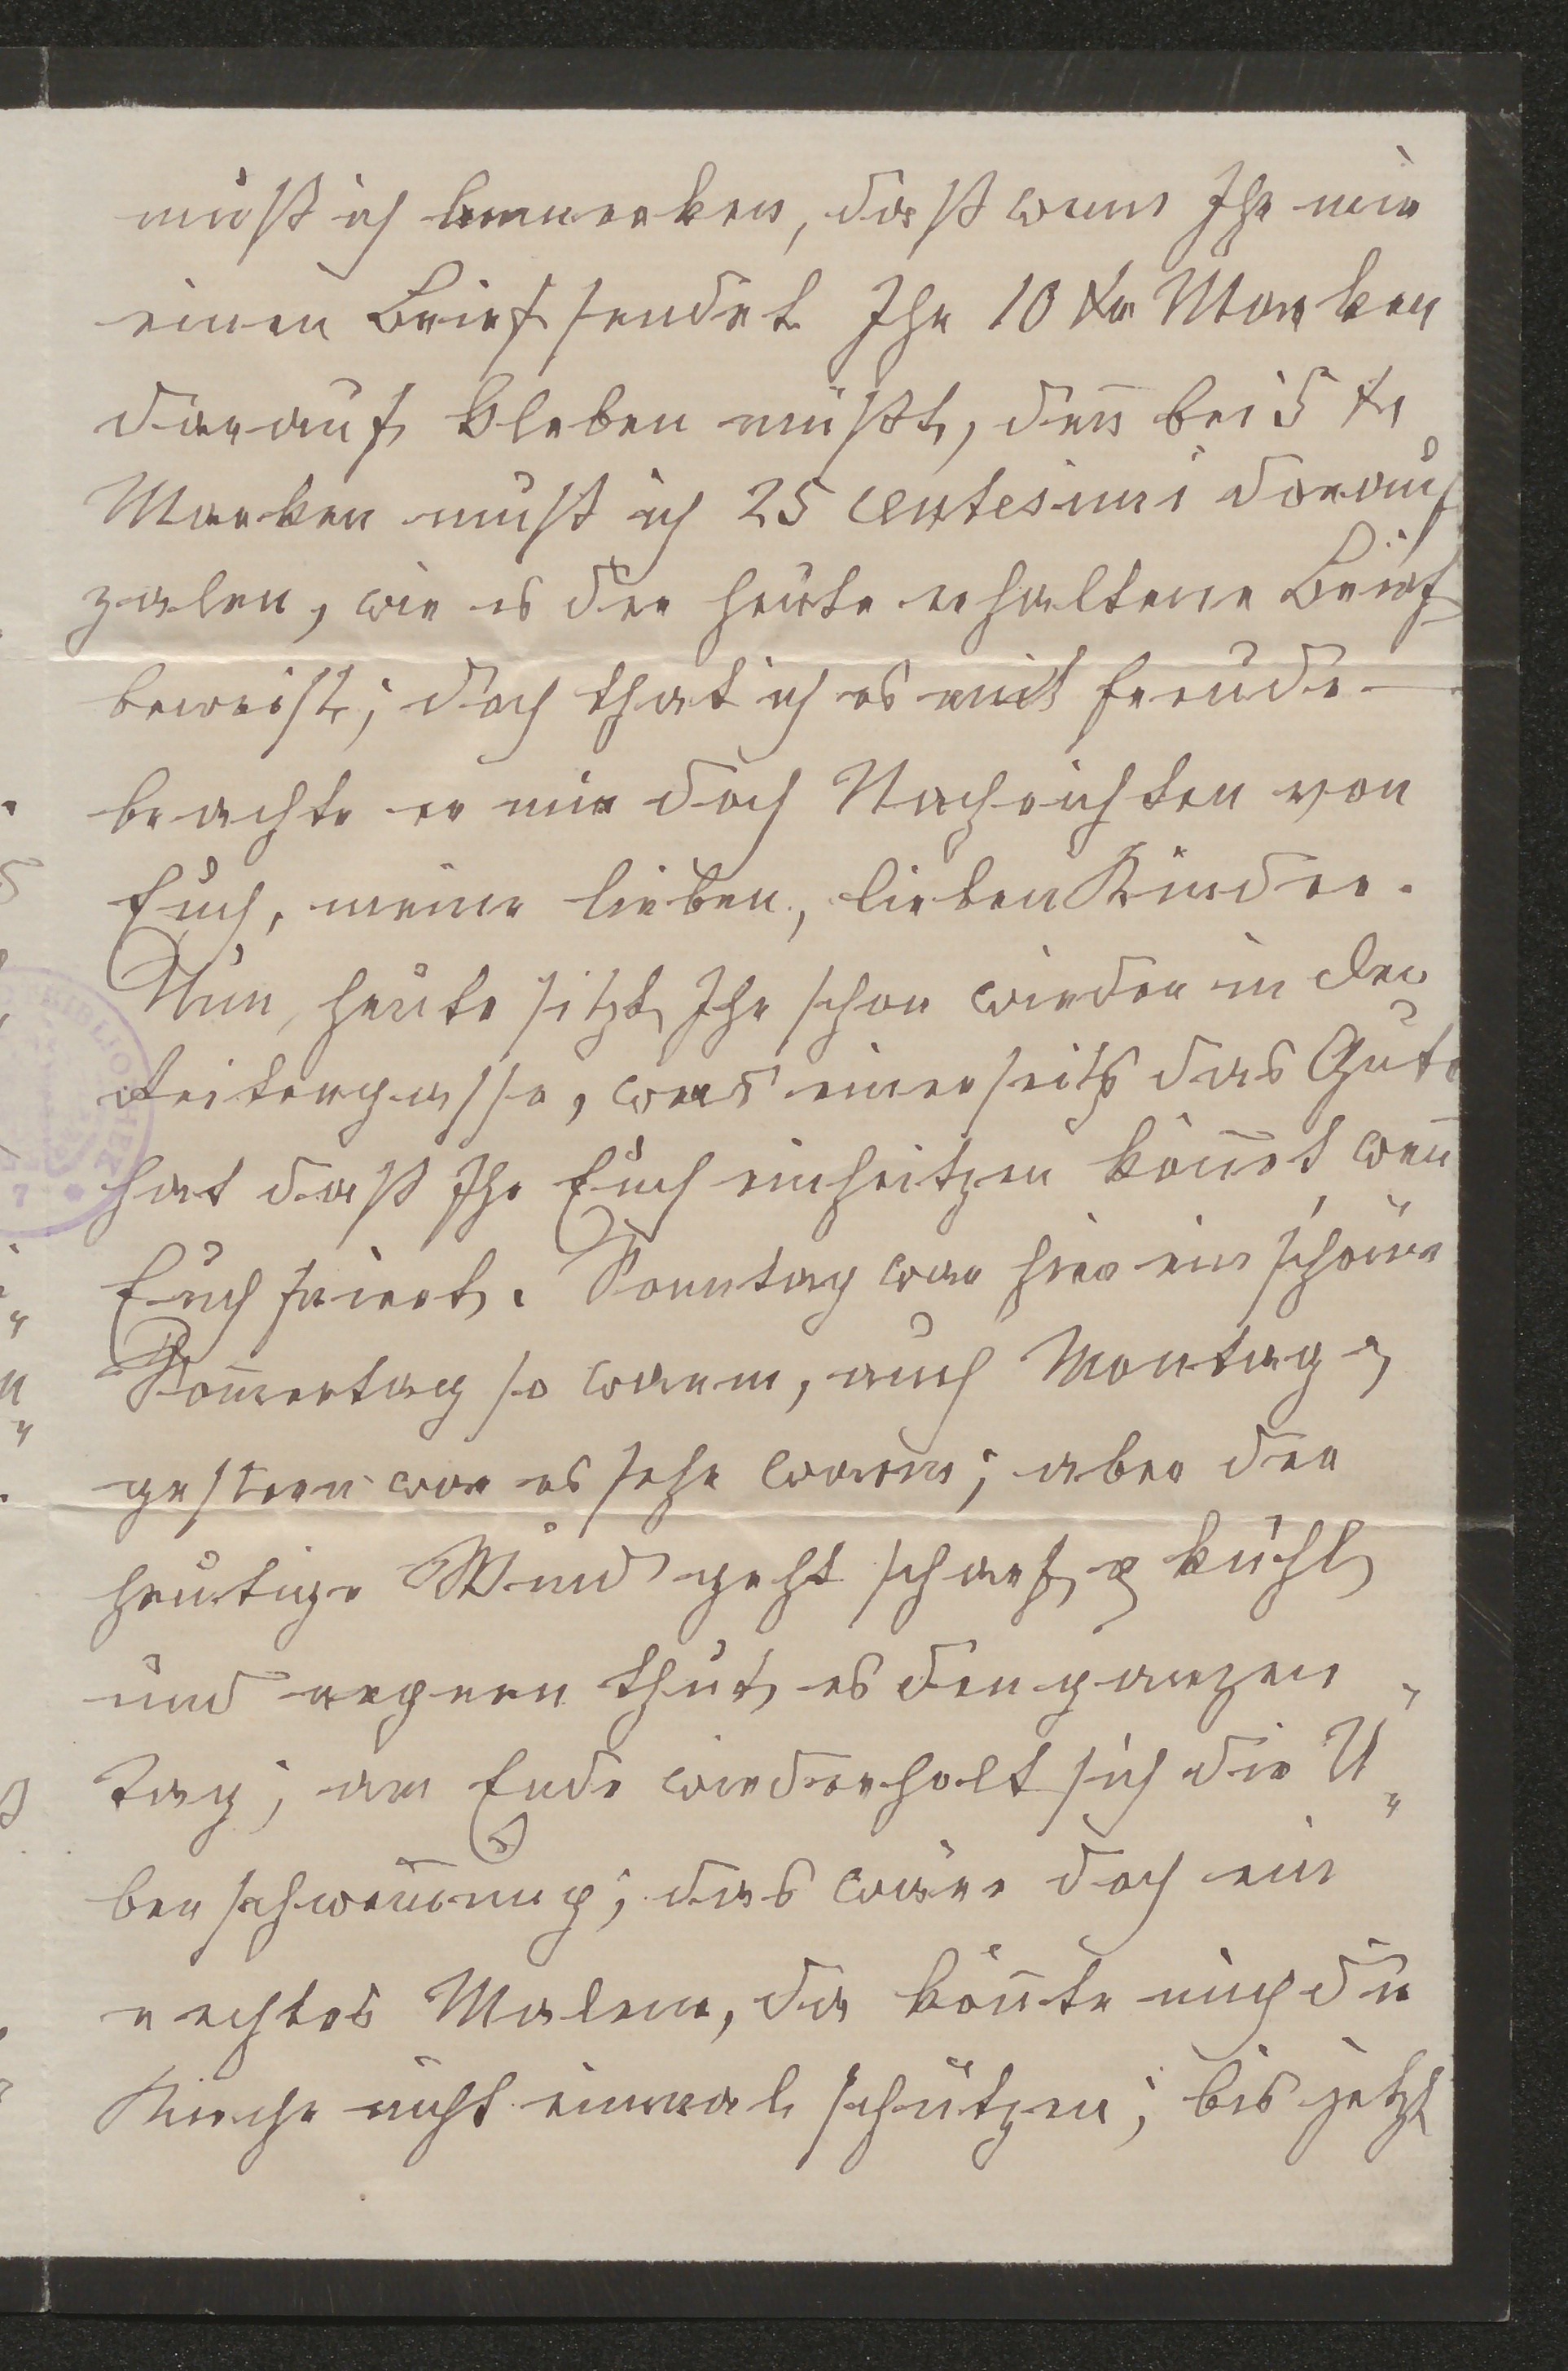 muß ich bemerken, daß wenn Ihr mir
einen Brief sendet Ihr 10 kr Marken
darauf kleben müßt, den̄ bei 5 kr
Marken mußt ich 25 centesimi darauf
zalen, wie es der heute erhaltene Brief
beweist; doch that ich es mit Freude
brachte er mir doch Nachrichten von
Euch, meine lieben, lieben Kinder.
Nun, heute sitzt Ihr schon wieder in der
was einerseits das Gute
hat daß Ihr Euch einheitzen kön̄et wen̄
Euch friert. Sonntag war hier ein schöner
Som̄ertag so warm, auch Montag &
gestern war es sehr warm; aber der
heutige Wind geht scharf & kühl
und regnen thut es den ganzen
Tag; am Ende wiederholt sich die Ü„
berschwem̄ung; das wäre doch ein
rechtes Malheur, da kön̄te mich die
Kirche nicht einmal schützen; bis jetzt
BIBLIOTHEK
7